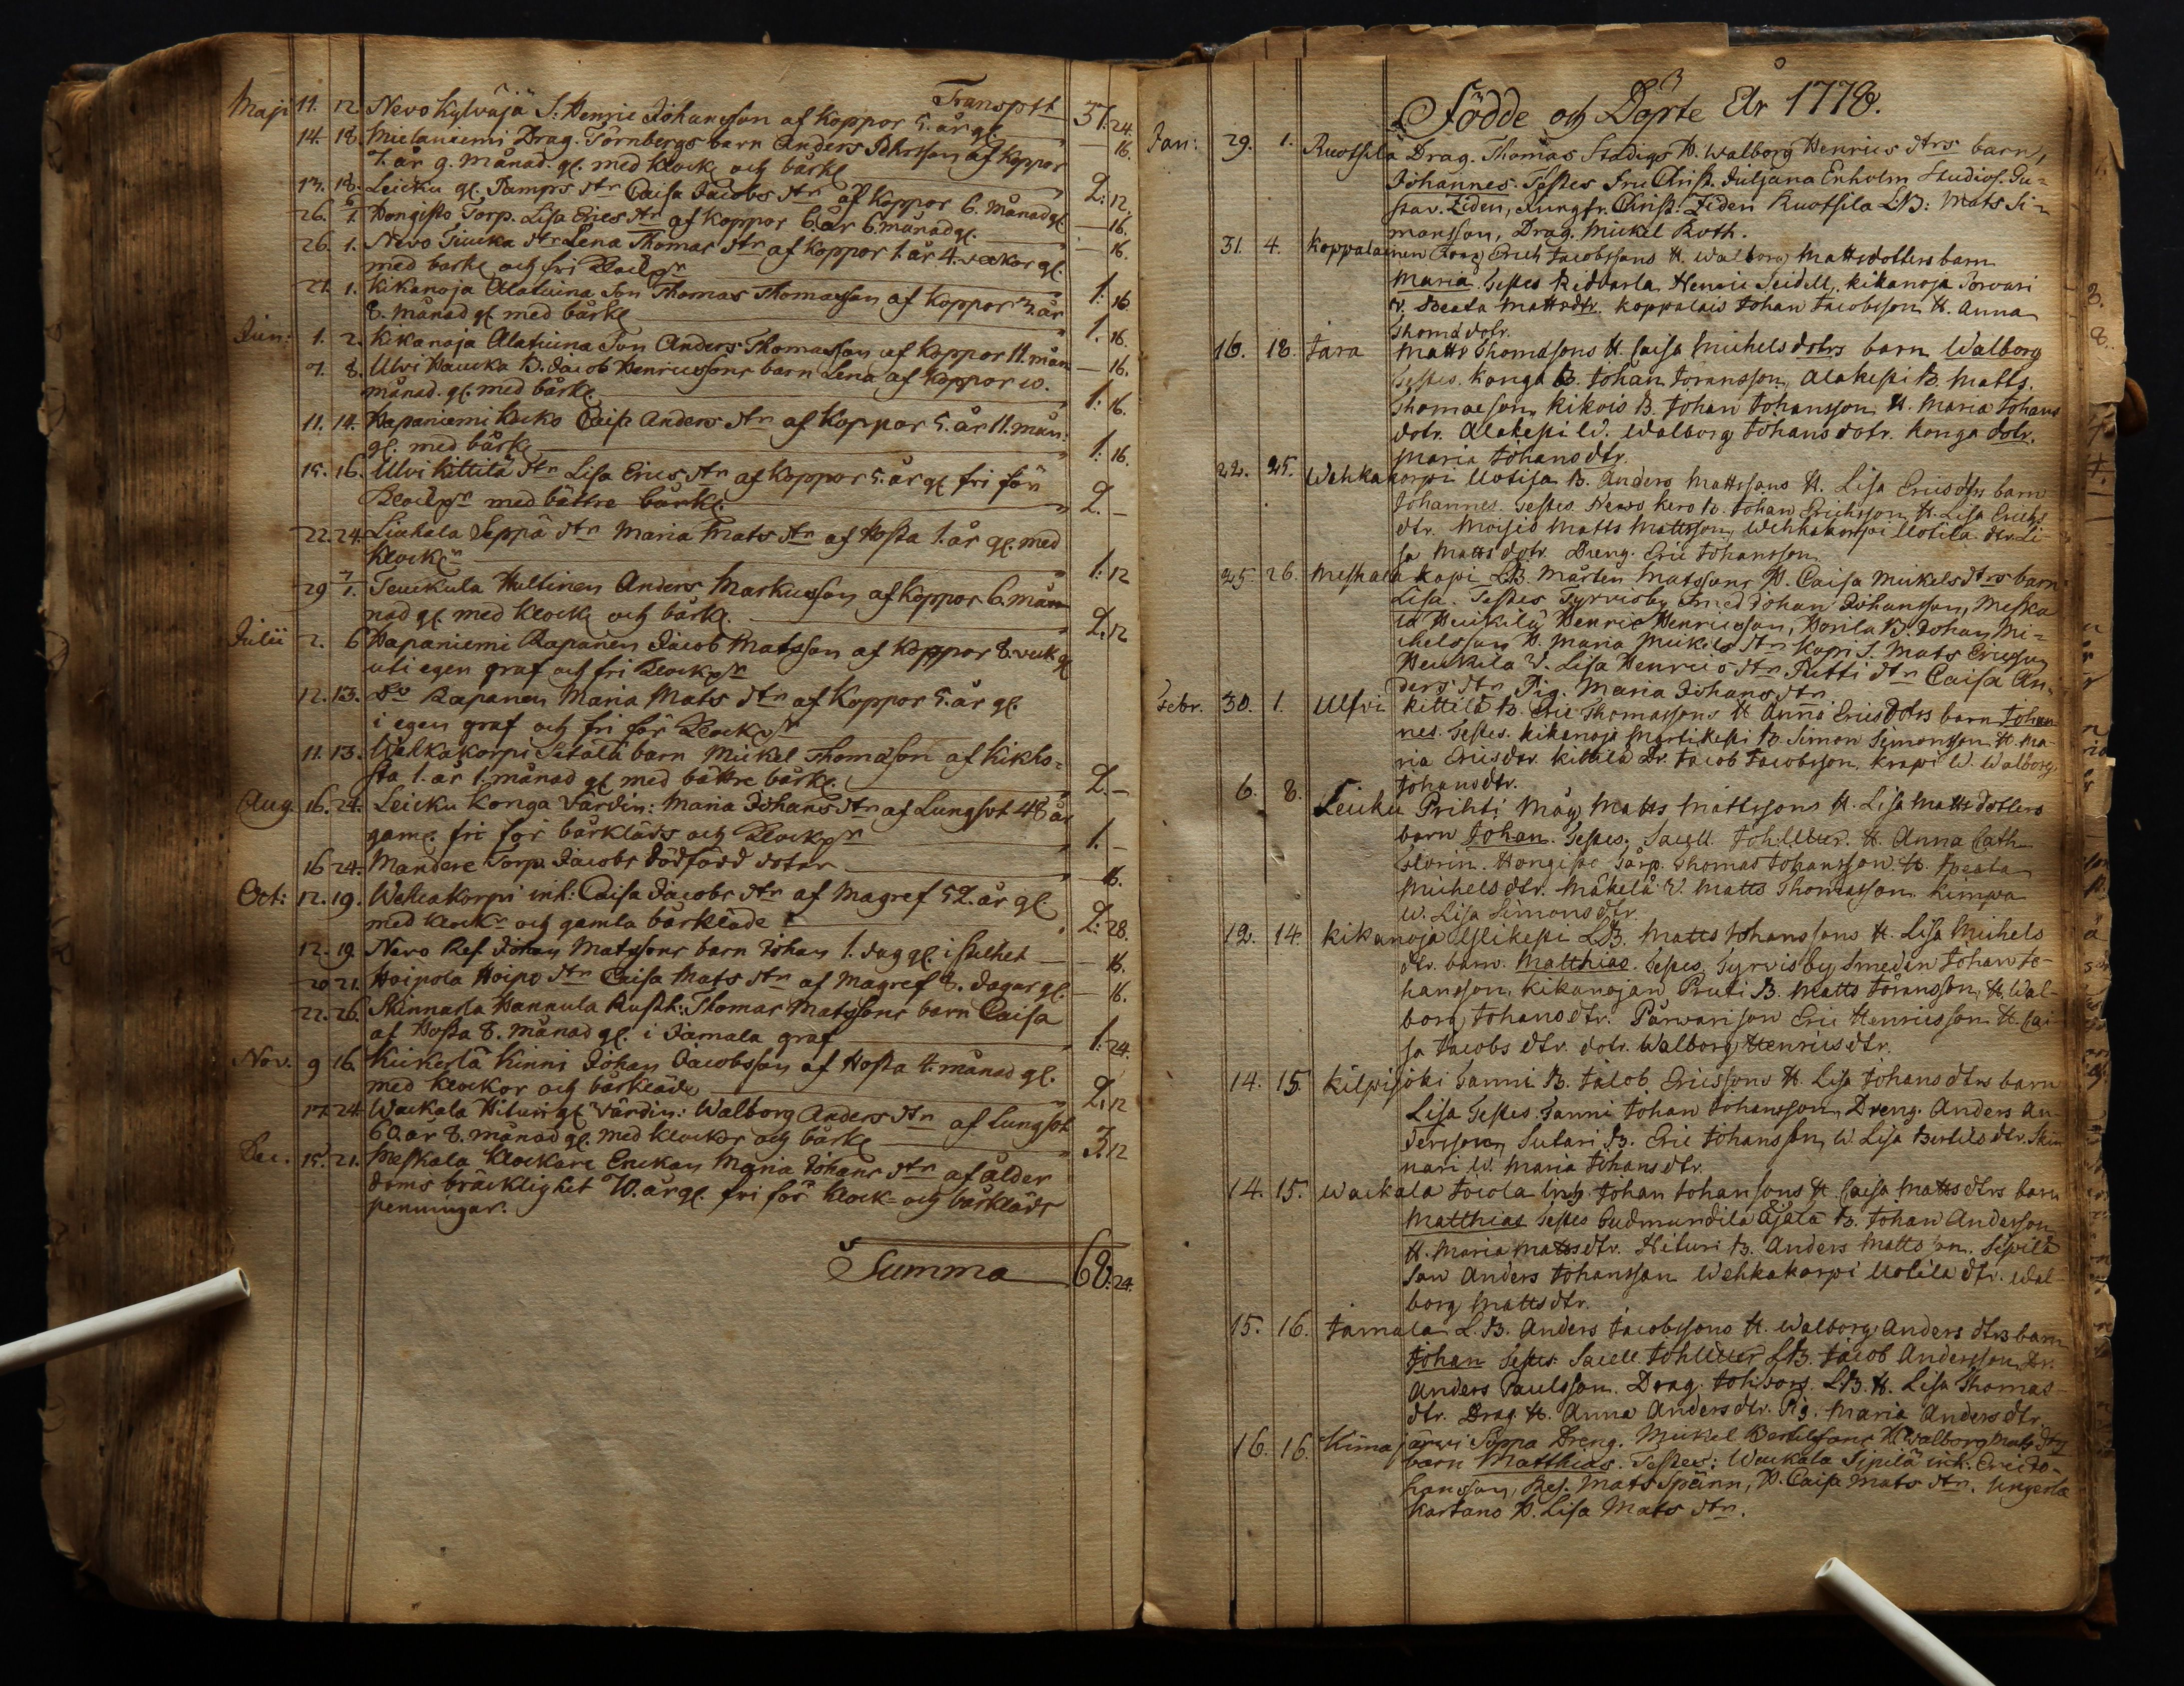 Transpt 37.24.
Maji 11. 12. Nevo Kylväjä S. Henric Johansson af Koppor 5. år gl. — 16.
14. 18. Mielaniemi Drag. Törnbergs barn Anders Johansson af Koppor
7. år 9. månad. gl. med klock och bårkl. 2:12.
13. 18. Leicku gl. Pamps dtr Caisa Jacobs dtr af Koppor 6. månad gl. — 16.
26. 1. Hongisto Torp. Lisa Erics dtr af Koppor 6. år 6. månad gl. — 16.
26. 1. Nevo Tiucka dtr Lena Thomas dtr af Koppor 1. år 4. veckor gl.
med bårkl och fri 1:16
21. 1. Kikanoja Alatiuina Son Thomas Thomasson af Koppor 3. år
8. månad gl med bårkl 1.16.
Jun: 1. 2. Kikanoja Alatiuina Son Anders Thomasson af Koppor 11. mån — 16.
7. 8. Ulvi Haucka B. Jacob Henricssons barn Lena af Koppor 10.
månad. gl. med bårkl. 1:16.
11. 14. Hapaniemi Caisa Anders dtr af Koppor 5. år 11. mån:
gl. med bårkl 1:16.
15. 16. Ulvi Kittilä dtr Lisa Erics dtr af Koppor 5. år gl fri för
med bättre bårkl. 2.—
22. 24. Liuhala Seppä dtr Maria Mats dtr af Hosta 1. år gl. med
Klockr 1:12
29 Teuckula Hultinen Anders Markusson af Koppor 6. mån
nad gl. med klock och bårkl. 2.12
Julii 2. 6 Hapaniemi Rapanen Jacob Matsson af Koppor 8. veck gl
uti egen graf och fri
12. 13. Do Rapanen Maria Mats dtr af Koppor 5. år gl.
i egen graf och fri för
11. 13. Wälkakorpi Jitälä barn Mickel Thomasson af Kikho=
sta 1. år 1. månad gl med bättre bårkl. 2.—
Aug. 16. 24. Leicku Konga Värdin: Maria Johans dtr af Lungsot 48 år
gaml. fri för bårkläds och 1.—
16 24. Mandere Torp. Jacobs dödfödd doter — 16.
Oct: 12. 19. Wehkakorpi inh: Caisa Jacobs dtr af Magref 52. år gl
med klockr och gamla bårkläde 2:28.
12. 19. Navo Ref. Johan Matssons barn Johan 1. dag gl. i stillhet — 16.
20 21. Hoipola Hoipo dtr Caisa Mats dtr af Magref 8. dagar gl. — 16.
22. 26. Skinnarla Hannula Rusth: Thomas Matssons barn Caisa
af Hosta 8. månad gl. i Jamala graf 1:24.
Nov. 9 16. Kickerlä Kinni Johan Jacobsson af Hosta 4. månad gl.
med klockor och bårkläde 2.12
17. 24. Wackala Hituri gl Värdin: Walborg Anders dtr af Lungsot
60. år 8. månad gl. med klockor och bårkl 3.12
Dec. 15. 21. Meskala Klockare Enckan Maria Johans dtr af ålder
doms bräcklighet 70. år gl. fri för klock- och bårkläds
penningar.
Summa 68.24.
Födde och Döpte År 1778.
Jan: 29. 1. Ruotsila Drag. Thomas Stadigs H. Walborg Henrics dtrs barn,
Johannes. Testes Fru Christ. Juljana Enholm Studios. Gu=
stav. Ziden, Jungfr. Christ: Ziden Ruotsila L.B: Mats Si=
monsson, Drag. Mickel Roth.
31. 4. Koppalainen Erich Jacobssons H. Walborg Mattsdotters barn
Maria. Testes Riddarla Henric Seidell, Kikanoja Torvari
V. Beata Mattsdtr. Koppalais Johan Jacobsson H. Anna
Thomædotr.
16. 18. Jara Matts Thomæsons H. Caisa Michelsdotrs barn Walborg
Testes. Konga B. Johan Göransson, Alakepi B. Matts.
Thomæson, Kikois B. Johan Johansson H. Maria Johans
dotr. Alakepi W. Walborg Johansdotr. Konga dotr.
Maria Johansdtr.
22. 25. Wehkakorpi Uotila B. Anders Mattssons H. Lisa Ericsdtrs barn
Johannes. Testes Newo Kero B. Johan Erichsson H. Lisa Erichs
dtr. Moisis Matts Mattsson, Wehkakorpi Uotila dtr. Li-
sa Matts dotr. Dreng. Eric Johansson
25. 26. Meskala Kapi L.B. Mårten Matssons H. Caisa Mickels dtrs barn
Lisa. Testes Tyrvisby Smed Johan Johansson, Meska
la Heickilä Henric Henricsson, Horila B. Johan Mi=
chelsson H. Maria Mickels dtr Kapi S. Mats Ericsson
Heickilä V. Lisa Henrics dtr Pietti dtr Caisa An=
ders dtr Pig. Maria Johans dtr
Febr. 30. 1. Ulfvi Kittilä B. Eric Thomassons H Anna Erics dotrs barn Johan
nes. Testes. Kikanoja Martikepi B. Simon Simonsson H. Ma-
ria Ericsdtr. Kittilä Dr. Jacob Jacobsson, Krapi W. Walborg
Johansdtr.
6. 8. Leuku Prihti Måg Matts Mattssons H. Lisa Mattsdotters
barn Johan. Testes. Sacell. Joh. H. Anna Cath.
Florin. Hongisto Tårp. Thomas Johansson H. Beata
Michelsdtr. Mäkelä V. Matts Thomasson. Kimpa
W. Lisa Simonsdtr.
12. 14. Kikanoja Ylikepi L.B. Matts Johanssons H. Lisa Michels
dtr. barn. Matthias. Testes Tyrvisby Smeden Johan Jo-
hansson, Kikanojan Pruti B. Matts Göransson, H. Wal-
borg Johansdtr. Parvari son Eric Henricsson H. Cai-
sa Jacobs dtr. dotr. Walborg Henricsdtr.
14. 15. Kilpijoki Tanni B. Jacob Ericssons H. Lisa Johansdtrs barn
Lisa Testes. Tanni Johan Johansson, Dreng. Anders An-
dersson, Sutari B. Eric Johansson, W. Lisa Bertilsdtr. Skin
nari W. Maria Johansdtr.
14. 15. Wackala Toiola Johan Johansons H. Caisa Mattsdtrs barn
Matthias Testes Gudmundila Äjälä B. Johan Anderson
H. Maria Mattsdtr. Hituri B. Anders Mattsson. Sipilä
Son Anders Johansson Wehkakorpi Uotila dtr. Wal-
borg Mattsdtr.
15. 16. Jamala L.B. Anders Jacobssons H. Walborg Anders dtrs barn
Johan Testes: Sacell. Joh. LB. Jacob Andersson, Dr.
Anders Paulsson. Drag. Joh. L.B. H. Lisa Thomas-
dtr. Drag. H. Anna Andersdtr. Pig. Maria Andersdtr.
16. 16. Kimajärvi Söppa Dreng. Mickel Bertilsons H. Walborg Mats dtrs
barn Matthias. Testes: Wackala Sipilä inh. Eric Jo-
hansson, Ref. Mats Spänn, H. Caisa Mats dtr. Ungerla
Kartano H. Lisa Mats dtr.